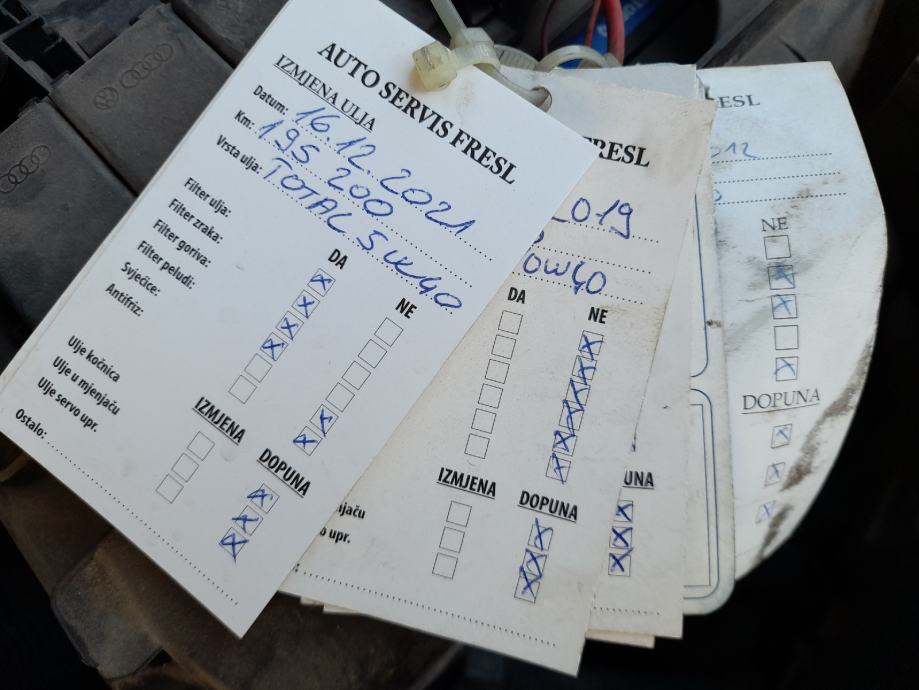 AUTO SERVIS FRESL
IZMJENA ULJA
Datum: 16.12.2021
Km: 195 200
Vrsta ulja: TOTAL 5W40
DA
NE
Filter ulja:
Filter zraka:
Filter goriva:
Filter peludi:
Svjećice:
Antifriz:
IZMJENA
DOPUNA
Ulje kočnica
Ulje u mjenjaču
Ulje servo upr.
Ostalo:
FRESL
2019
0W40
DA
NE
IZMJENA
DOPUNA
njaču
upr.
UNA
RESL
012
NE
DOPUNA